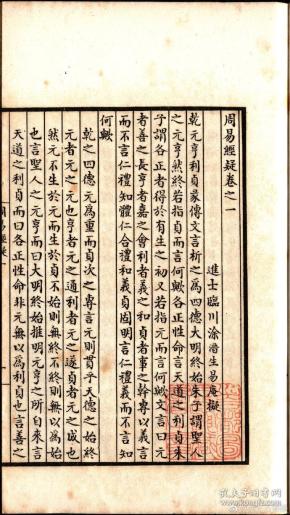 周易經疑卷之一
進士臨川涂溍生易庵擬
乾元亨利貞彖傳文言析之為四德大明終始朱子謂聖人
之元亨然終若指貞而言何歟各正性命言天道之利貞朱
子謂各正者得於有生之初又若指元而言何歟文言曰元
者善之長亨者嘉之會利者義之和貞者事之幹專以義言
而不言仁禮知體仁合禮和義貞固明言仁禮義而不言知
何歟
乾之四德元為重而貞次之專言元則貫乎天德之始終
元者元之元也亨者元之通利者元之遂貞者元之成也
然元不生於元而生於貞不始則無終不終則無以為始
也言聖人之元亨而曰大明終始推明元亨之所自來言
天道之利貞而曰各正性命非元無以為利貞也言善之
周易經疑